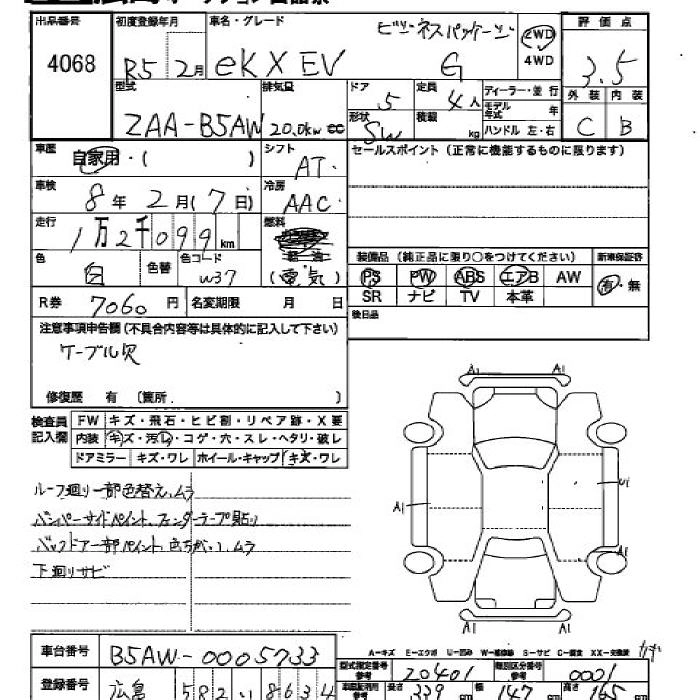 出品番号 初度登録年月 車名・グレード 評価点
4068 R5 2月 eKXEV ビジネスパッケージ G 2WD 4WD 3.5
型式 排気量 ドア 定員 ディーラー・並行 外装 内装
ZAA-B5AW 20.0kw cc 5 4人 モデル年式 年 C B
形状 SW 積載 kg ハンドル 左・右
車歴 自家用・( ) シフト AT セールスポイント(正常に機能するものに限ります)
車検 8年2月(7日) 冷房 AAC
走行 1万2千099km 燃料
色 白 色替 色コード W37 (電気) 装備品(純正品に限り○をつけてください) 新車保証書
PS PW ABS エアB AW 有・無
R券 7060円 名変期限 月 日 SR ナビ TV 本革
注意事項申告欄(不具合内容等は具体的に記入して下さい) 後日品
ケーブル欠
修復歴 有 (箇所. )
検査員記入欄 FW キズ・飛石・ヒビ割・リペア跡・X要
内装 キズ・汚レ・コゲ・穴・スレ・ヘタリ・破レ
ドアミラー キズ・ワレ ホイール・キャップ キズ・ワレ
A1 A1
ルーフ廻り一部色替え、ムラ
A1 U1
バンパーサイドペイント、フェンダーテープ貼り
バックドア一部ペイント、色ちがい、ムラ
A1
下廻りサビ
A1 A1
車台番号 B5AW-0005733
A-キズ E-エクボ U-凹み W-補修跡 S-サビ C-腐食 XX-交換済
型式指定番号 参考 20401 類別区分番号 参考 0001
登録番号 広島 582 い 8634
長さ 339 cm 幅 147 cm 高さ 165 cm